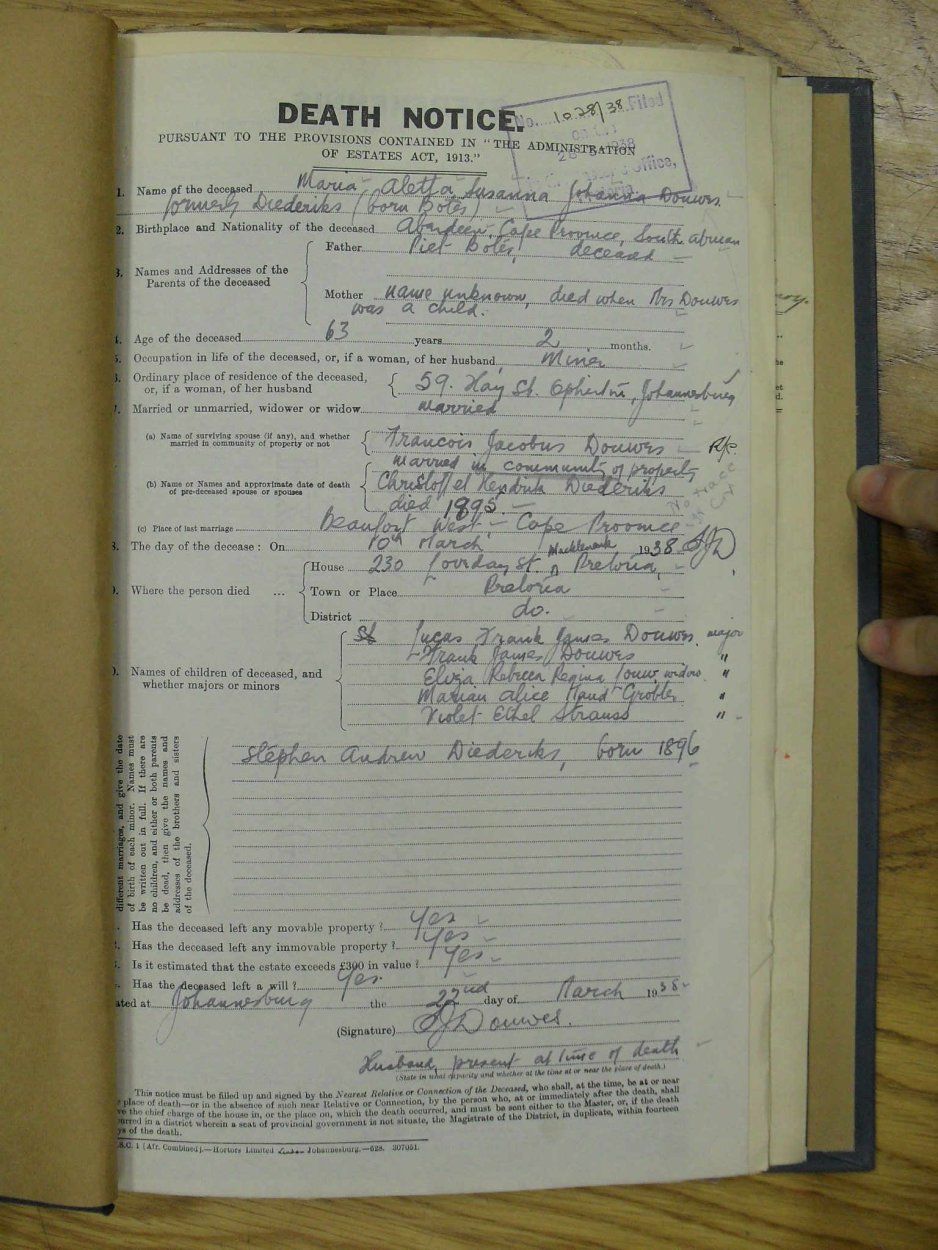 DEATH NOTICE.
No. 1028/38 Filed
PURSUANT TO THE PROVISIONS CONTAINED IN "THE ADMINISTRATION
OF ESTATES ACT, 1913."
Office,
1. Name of the deceased Maria Aletta Susanna Johanna Douwes
formerly Diederiks (born Botes)
2. Birthplace and Nationality of the deceased Aberdeen, Cape Province, South African
Father Piet Botes, deceased
3. Names and Addresses of the
Parents of the deceased
Mother name unknown, died when Mrs Douwes
was a child.
4. Age of the deceased 63 years 2 months.
5. Occupation in life of the deceased, or, if a woman, of her husband Miner
8. Ordinary place of residence of the deceased,
or, if a woman, of her husband
59. Hay St. Ophirton, Johannesburg
7. Married or unmarried, widower or widow married
(a) Name of surviving spouse (if any), and whether
married in community of property or not
Francois Jacobus Douwes
married in community of property
(b) Name or Names and approximate date of death
of pre-deceased spouse or spouses
Christoffel Hendrik Diederiks
died 1895
No trace
(c) Place of last marriage Beaufort West - Cape Province
8. The day of the decease: On 10th March 1938 FJD
House 230 Loveday St. Muckleneuk Pretoria
9. Where the person died ... Town or Place Pretoria
District do.
Lucas Frank James Douwes major
Frank James Douwes "
0. Names of children of deceased, and
whether majors or minors
Eliza Rebecca Regina Louw, widow "
Marian Alice Maud Grobler "
Violet Ethel Strauss "
different marriages, and give the date
of birth of each minor. Names must
be written out in full. If there are
no children, and either or both parents
be dead, then give the names and
addresses of the brothers and sisters
of the deceased.
Stephen Andrew Diederiks, born 1896
Has the deceased left any movable property? Yes
Has the deceased left any immovable property? Yes
Is it estimated that the estate exceeds £300 in value? Yes
Has the deceased left a will? Yes.
ated at Johannesburg the 22nd day of March 1938
(Signature) FJDouwes.
Husband, present at time of death
(State in what capacity and whether at the time at or near the place of death.)
This notice must be filled up and signed by the Nearest Relative or Connection of the Deceased, who shall, at the time, be at or near
place of death—or in the absence of such near Relative or Connection, by the person who, at or immediately after the death, shall
ve the chief charge of the house in, or the place on, which the death occurred, and must be sent either to the Master, or, if the death
urred in a district wherein a seat of provincial government is not situate, the Magistrate of the District, in duplicate, within fourteen
ys of the death.
.B.C. 1 [Afr. Combined].—Hortors Limited Johannesburg.—628. 307051.